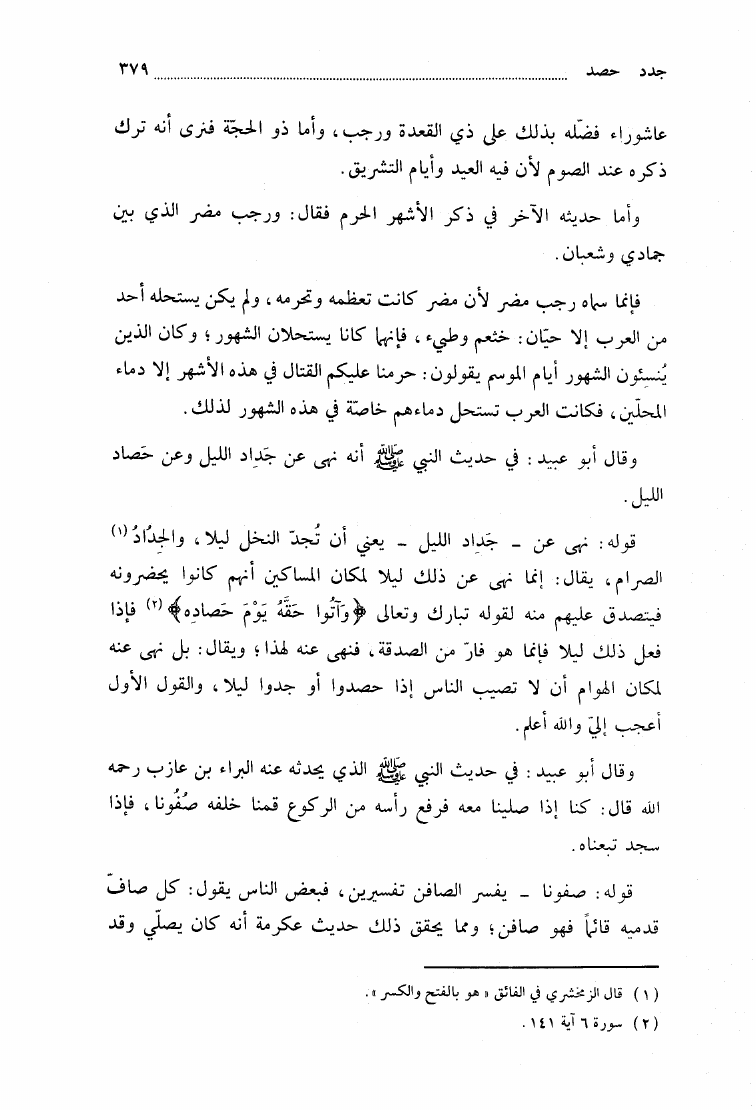 جدد حصد ................ ٣٧٩
عاشوراء فضّله بذلك على ذي القعدة ورجب، وأما ذو الحجّة فنرى أنه ترك
ذكره عند الصوم لأن فيه العيد وأيام التشريق.
وأما حديثه الآخر في ذكر الأشهر الحرم فقال: ورجب مضر الذي بين
جمادي وشعبان.
فإنما سماه رجب مضر لأن مضر كانت تعظمه وتحرمه، ولم يكن يستحله أحد
من العرب إلا حيّان: خثعم وطيء، فإنهما كانا يستحلان الشهور؛ وكان الذين
يُنسِئون الشهور أيام الموسم يقولون: حرمنا عليكم القتال في هذه الأشهر إلا دماء
المحلّين، فكانت العرب تستحل دماءهم خاصّة في هذه الشهور لذلك.
وقال أبو عبيد: في حديث النبي ﷺ أنه نهى عن جَداد الليل وعن حَصاد
الليل.
قوله: نهى عن - جَداد الليل - يعني أن تُجدّ النخل ليلا، والجِدَادُ (١)
الصرام، يقال: إنما نهى عن ذلك ليلا لمكان المساكين أنهم كانوا يحضرونه
فيتصدق عليهم منه لقوله تبارك وتعالى ﴿وَآتُوا حَقَّهُ يَوْمَ حَصادِه﴾ (٢) فإذا
فعل ذلك ليلا فإنما هو فارّ من الصدقة، فنهى عنه لهذا؛ ويقال: بل نهى عنه
لمكان الهوام أن لا تصيب الناس إذا حصدوا أو جدوا ليلا، والقول الأول
أعجب إليّ والله أعلم.
وقال أبو عبيد: في حديث النبي ﷺ الذي يحدثه عنه البراء بن عازب رحمه
الله قال: كنا إذا صلينا معه فرفع رأسه من الركوع قمنا خلفه صُفُونا، فإذا
سجد تبعناه.
قوله: صفونا - يفسر الصافن تفسيرين، فبعض الناس يقول: كل صافّ
قدميه قائماً فهو صافن؛ ومما يحقق ذلك حديث عكرمة أنه كان يصلّي وقد
(١) قال الزمخشري في الفائق «هو بالفتح والكسر».
(٢) سورة ٦ آية ١٤١.